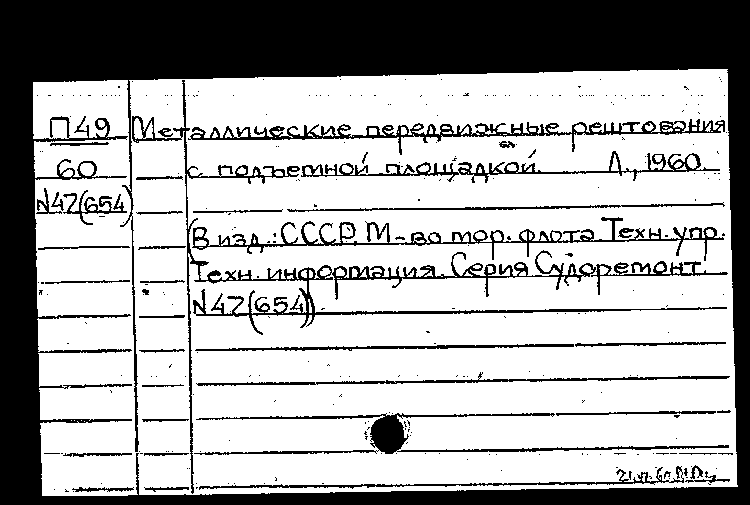 П49 Металлические передвижные рештования
60 с подъемной площадкой. Л., 1960.
N47(654)
(В изд.: СССР. М-во мор. флота. Техн. упр.
Техн. информация. Серия Судоремонт.
N47(654))